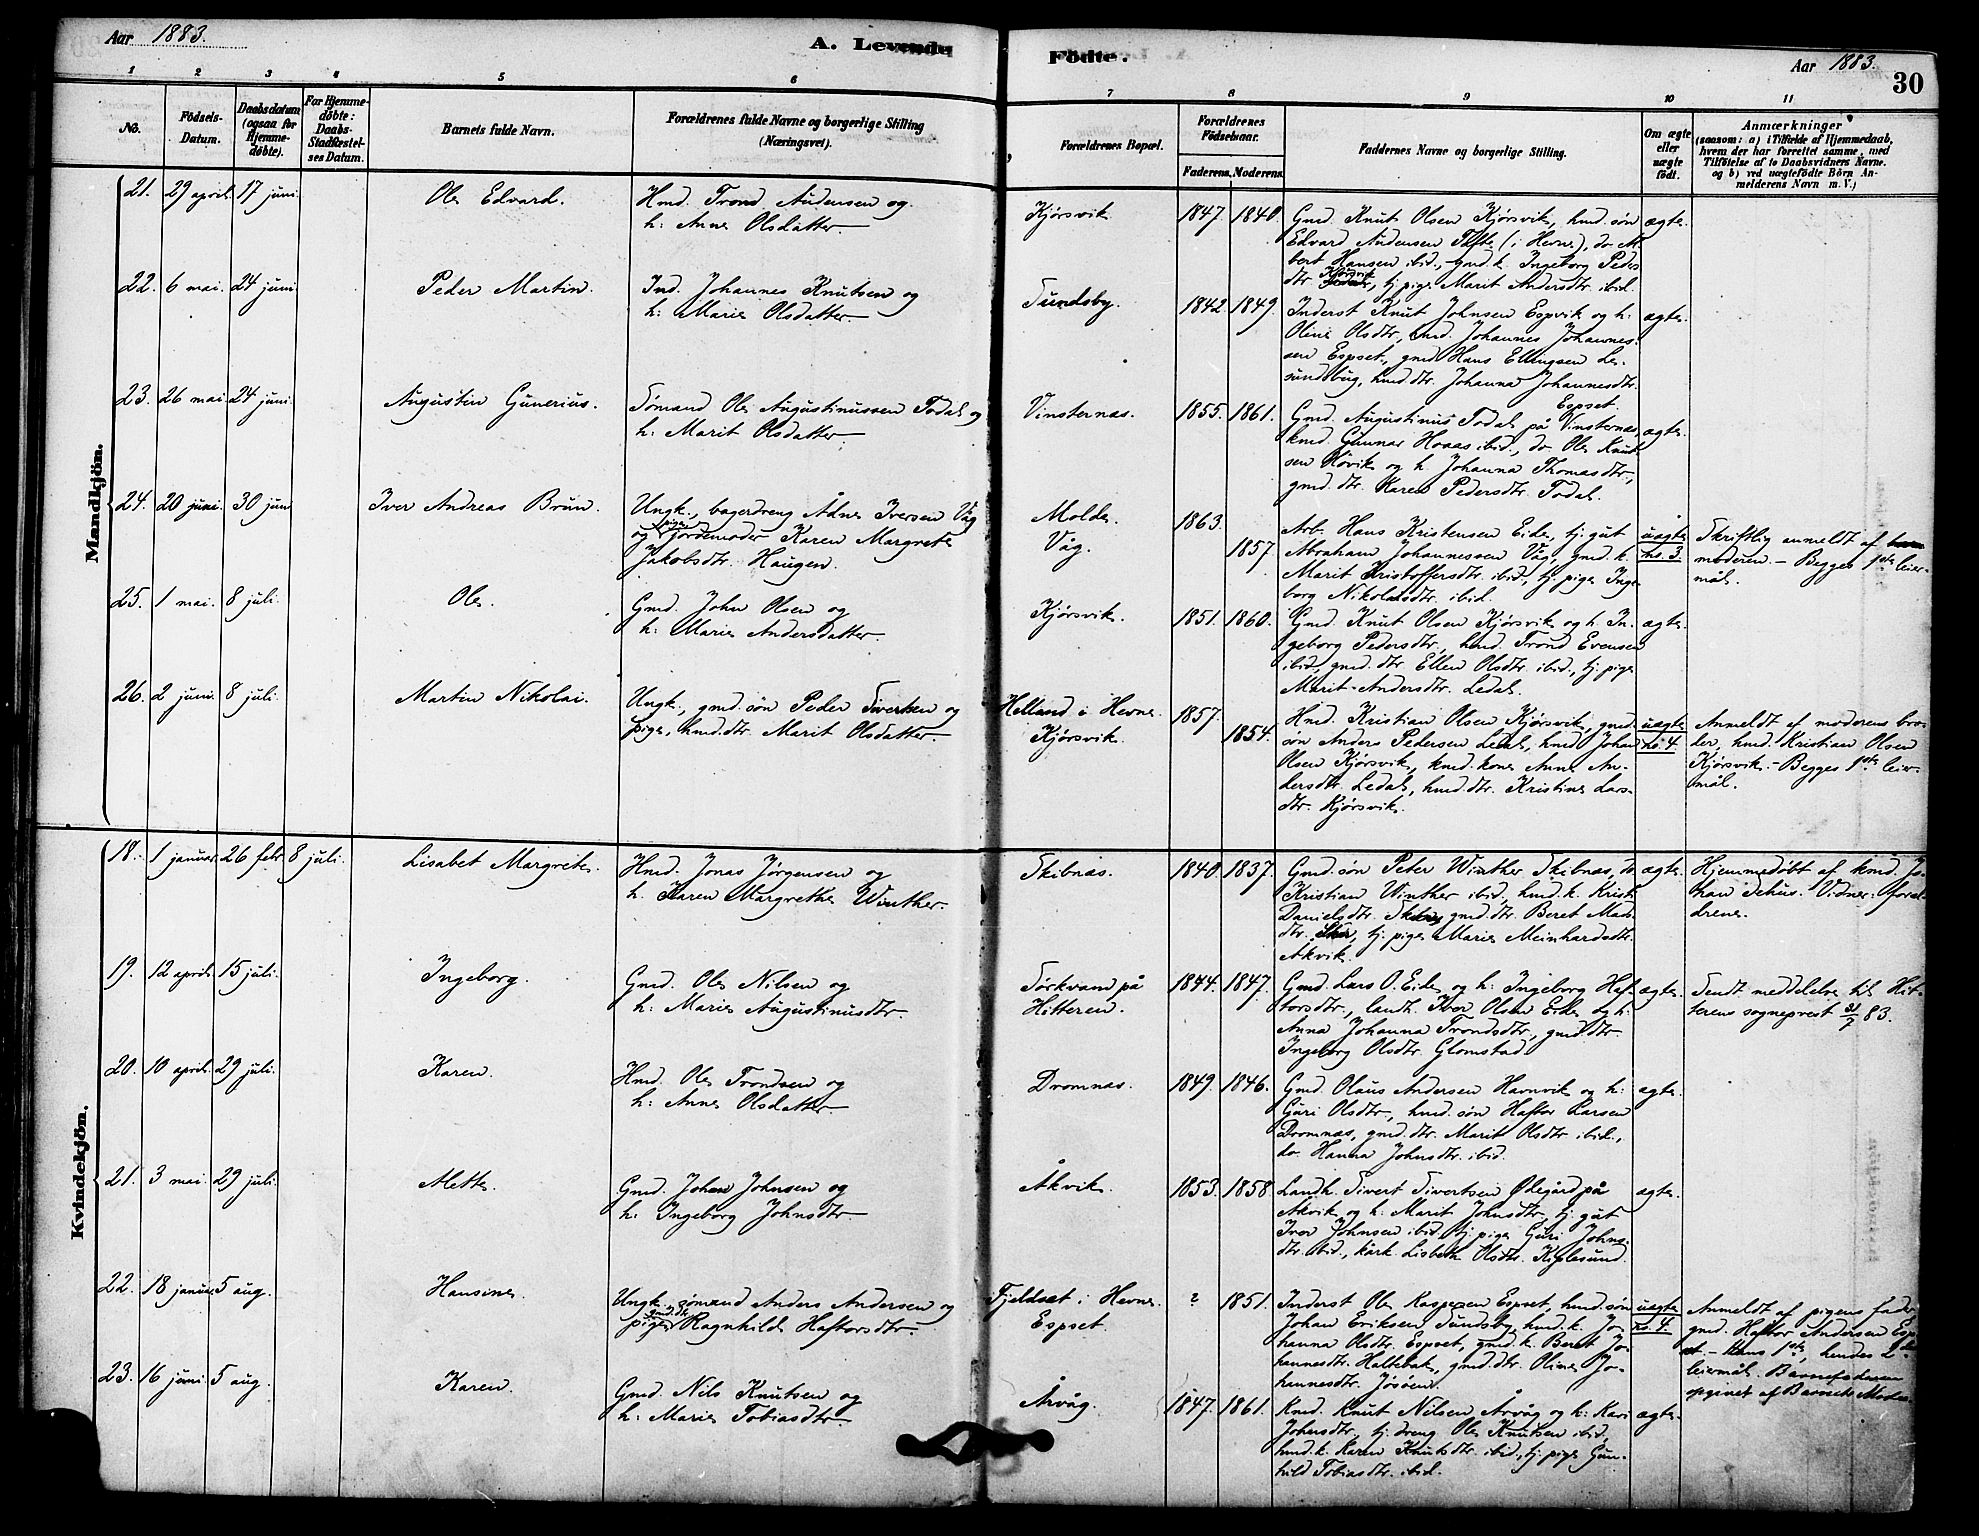 Aar 1883.
A. Levende
Födte.
Aar 1883.
30
1 2 3 4 5 6 7 8 9 10 11
No.
Fødsels-
Datum.
Daabsdatum
(ogsaa for
Hjemme-
døbte).
For Hjemme-
døbte:
Daabs-
Stadfæstel-
ses Datum.
Barnets fulde Navn.
Forældrenes fulde Navne og borgerlige Stilling
(Næringsvei).
Forældrenes Bopæl.
Forældrenes
Fødselsaar.
Faderens. Moderens.
Faddernes Navne og borgerlige Stilling.
Om ægte
eller
uægte
födt.
Anmærkninger
(saasom: a) i Tilfælde af Hjemmedaab,
hvem der har forrettet samme, med
Tilføielse af to Daabsvidners Navne.
og b) ved uægtefödte Börn An-
melderens Navn m. V.)
Mandkjön.
21. 29 april. 17 juni. Ole Edvard.
Hmd. Trond Audensen og
h: Anne Olsdatter.
Kjørsvik. 1847. 1840.
Gmd. Knut Olsen Kjørsvik, hmd. søn
Edvard Audensen Tafte (i Hevne), do Al-
bert Hansen ibid., gmd. k. Ingeborg Peders
dtr Kjørsvik, tj. pige Marit Andersdtr. ibid.
ægte.
22. 6 mai. 24 juni. Peder Martin.
Ind. Johannes Knutsen og
h: Marie Olsdatter.
Sundsby. 1842. 1849.
Inderst Knut Johnsen Espvik og h:
Oline Olsdtr., hmd. Johannes Johannes-
sen Espset, gmd Hans Ellingsen Le-
sundbug, hmd. dtr. Johanna Johannesdtr.
Espset.
ægte.
23. 26 mai. 24 juni. Augustin Gunerius.
Sømand Ole Augustinussen Todal og
h: Marit Olsdatter.
Vinsternes. 1855. 1861.
Gmd. Augustinus Todal på Vinsternes,
kmd. Gunnar Hoaas ibid., do Ole Knut-
sen Høvik og h. Johanna Thomasdtr.,
gmd. dtr. Karen Pedersdtr. Todal.
ægte.
24. 20 juni. 30 juni Iver Andreas Brun.
Ungk., bagerdreng Adne Iversen Våg
og pige Gjordemoder Karen Margrete
Jakobsdtr. Haugen.
Molde. 1863.
Våg. 1857.
Arb. Hans Kristensen Eide, tj. gut
Abraham Johannessen Våg, gmd. k.
Marit Kristoffersdtr. ibid., tj. pige Inge-
borg Nikolaisdtr. ibid.
uægte
no. 3.
Skriftlig anmeldt af
moderen. - Begges 1ste leier-
mål.
25. 1 mai. 8 juli. Ole.
Gmd. John Olsen og
h: Marie Andersdatter.
Kjørsvik. 1851. 1860.
Gmd. Knut Olsen Kjørsvik og h. In-
geborg Pedersdtr., hmd. Trond Evensen
ibid., gmd. dtr. Ellen Olsdtr. ibid., tj. pige
Marit Andersdtr. Ledal.
ægte.
26. 2 juni. 8 juli. Martin Nikolai.
Ungk., gmd. søn Peder Sivertsen og
pige, hmd. dtr. Marit Olsdatter.
Helland i Hevne. 1857.
Kjørsvik. 1854.
Hmd. Kristian Olsen Kjørsvik, gmd.
søn Anders Pedersen Ledal, hmd. Johan
Olsen Kjørsvik, kmd. kone Anne An-
dersdtr. Ledal, hmd. dtr. Kristine Lars-
dtr. Kjørsvik.
uægte
no. 4.
Anmeldt af moderens bro-
der, hmd. Kristian Olsen
Kjørsvik. - Begges 1ste leier-
mål.
Kvindekjön.
18. 1 januar. 26 febr. 8 juli. Lisabet Margrete.
Hmd. Jonas Jørgensen og
h. Karen Margrethe Winther.
Skibnes. 1840. 1837.
Gmd. søn Peter Winther Skibnes, do
Kristian Winther ibid., hmd. k. Kirsti
Danielsdtr. gmd. dtr. Beret Mads-
dtr. tj. pige Marie Meinhardsdtr.
Akvik.
ægte.
Hjemmedøbt af kmd. Jo-
han Vidner: foræl-
drene.
19. 12 april. 15 juli. Ingeborg.
Gmd. Ole Nilsen og
h: Marie Augustinusdtr.
Sørkvand på
Hitteren.
1844. 1847.
Gmd. Lars O. Eide og h: Ingeborg Haf-
torsdtr., landh. Iver Olsen Eide og h:
Anna Johanna Trondsdtr., gmd. dtr.
Ingeborg Olsdtr. Glomstad.
ægte.
Sendt meddelelse til Hit-
terens sogneprest 31/7 83.
20. 10 april. 29 juli. Karen.
Hmd. Ole Trondsen og
h: Anne Olsdatter.
Dromnes. 1849. 1846.
Gmd. Olaus Andersen Havnvik og h:
Guri Olsdtr., hmd. søn Haftor Larsen
Dromnes, gmd. dtr. Marit Olsdtr. ibid.,
do. Hanna Johnsdtr. ibid.
ægte.
21. 3 mai. 29 juli. Mette.
Gmd. Johan Johnsen og
h: Ingeborg Johnsdtr.
Åkvik. 1853. 1858.
Landh. Sivert Sivertsen Ødegård på
Akvik og h: Marit Johnsdtr., tj. gut
Iver Johnsen ibid., tj. pige Guri Johns-
dtr. ibid., kårk. Lisbeth Olsdtr. Kiplesund.
ægte.
22. 18 januar. 5 aug. Hansine.
Ungk. sømand Anders Andersen og
pige gmd. dtr. Ragnhild Haftorsdtr.
Fjeldset i Hevne. ?
Espset. 1851.
Inderst Ole Kaspersen Espset, hmd. søn
Johan Eriksen Sundsby, hmd. k. Jo-
hanna Olsdtr. Espset, gmd. k. Beret Jo-
hannesdtr. Haltbak, gmd. dtr. Oline Jo-
hannesdtr. Jøsøen.
uægte
no. 4.
Anmeldt af pigens fader
gmd. Haftor Andersen Esp-
set. - Hans 1ste, hendes 2det
leiermål. Barnefaderen
opgivet af Barnets Moder.
23. 16 juni. 5 aug. Karen.
Gmd. Nils Knutsen og
h: Marie Tobiasdtr.
Årvåg. 1847. 1861.
Kmd. Knut Nilsen Årvåg og h: Kari
Johnsdtr., tj. dreng Ole Knutsen ibid.,
hmd. k. Karen Knutsdtr. ibid., tj. pige Gun-
hild Tobiasdtr. ibid.
ægte.